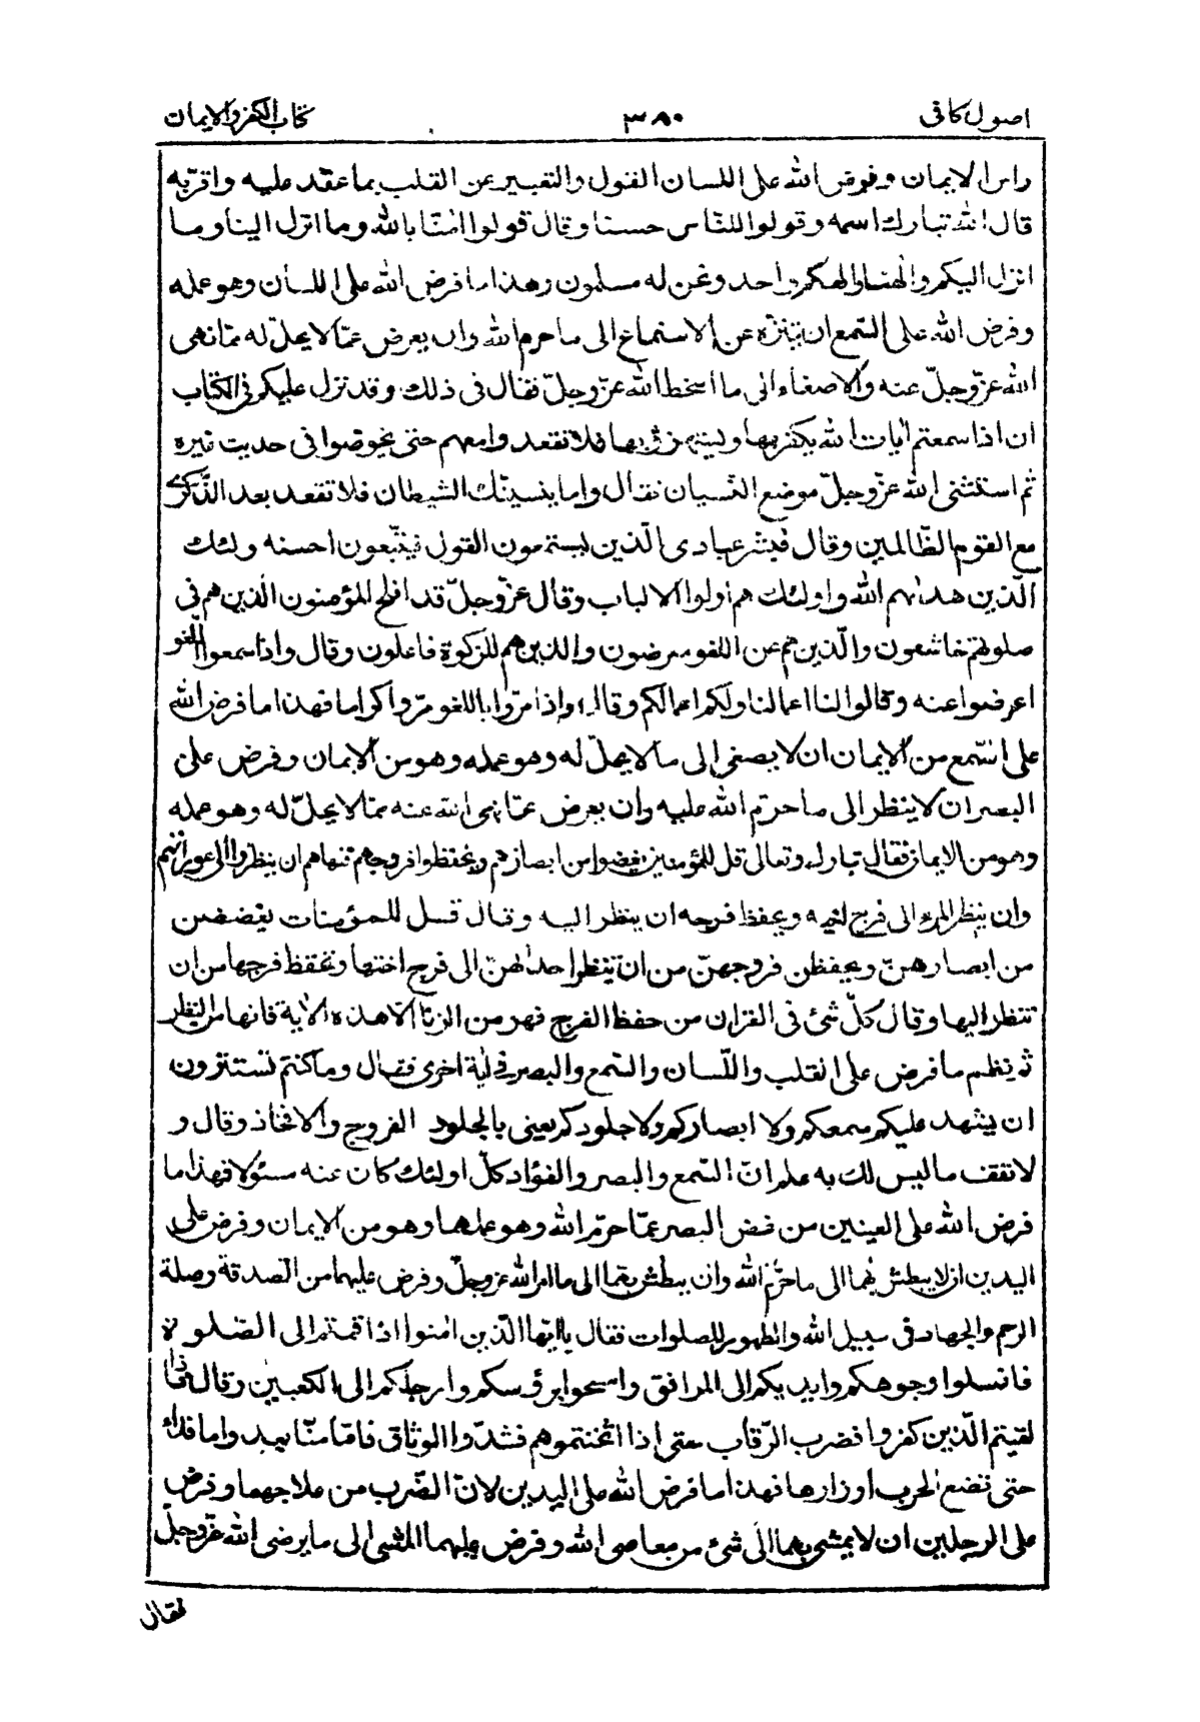 اصول كافى ٣٨٠ كتاب الكفر والايمان
راس الايمان وفرض الله على اللسان القول والتعبير عن القلب بما عقد عليه واقر به
قال الله تبارك اسمه وقولوا للناس حسنا وقال قولوا امنا بالله وما انزل الينا وما
انزل اليكم والهنا والهكم واحد ونحن له مسلمون وهذا ما فرض الله على اللسان وهو عمله
وفرض الله على السمع ان يتنزه عن الاستماع الى ما حرم الله وان يعرض عما لا يحل له مما نهى
الله عز وجل عنه والاصغاء الى ما اسخط الله عز وجل فقال فى ذلك وقد نزل عليكم فى الكتاب
ان اذا سمعتم ايات الله يكفر بها ويستهزئ بها فلا تقعدوا معهم حتى يخوضوا فى حديث غيره
ثم استثنى الله عز وجل موضع النسيان فقال واما ينسينك الشيطان فلا تقعد بعد الذكرى
مع القوم الظالمين وقال فبشر عبادى الذين يستمعون القول فيتبعون احسنه ولئك
الذين هديهم الله واولئك هم اولوا الالباب وقال عز وجل قد افلح المؤمنون الذين هم فى
صلوتهم خاشعون والذين هم عن اللغو معرضون والذين هم للزكوة فاعلون وقال واذا سمعوا اللغو
اعرضوا عنه وقالوا لنا اعمالنا ولكم اعمالكم وقال واذا مروا باللغو مروا كراما فهذا ما فرض الله
على السمع من الايمان ان لا يصغى الى ما لا يحل له وهو عمله وهو من الايمان وفرض على
البصر ان لا ينظر الى ما حرم الله عليه وان يعرض عما نهى الله عنه مما لا يحل له وهو عمله
وهو من الايمان فقال تبارك وتعالى قل للمؤمنين يغضوا من ابصارهم ويحفظوا فروجهم فنهاهم ان ينظروا الى عوراتهم
وان ينظر المرء الى فرج اخيه ويحفظ فرجه ان ينظر اليه وقال قل للمؤمنات يغضضن
من ابصارهن ويحفظن فروجهن من ان تنظر احداهن الى فرج اختها وتحفظ فرجها من ان
تنظر اليها وقال كل شئ فى القران من حفظ الفرج فهو من الزنا الا هذه الاية فانها من النظر
ثم نظم ما فرض على القلب واللسان والسمع والبصر فى اية اخرى فقال وما كنتم تستترون
ان يشهد عليكم سمعكم ولا ابصاركم ولا جلودكم يعنى بالجلود الفروج والافخاذ وقال و
لا تقف ما ليس لك به علم ان السمع والبصر والفؤاد كل اولئك كان عنه مسئولا فهذا ما
فرض الله على العينين من غض البصر عما حرم الله وهو عملهما وهو من الايمان وفرض على
اليدين ان لا يبطش بهما الى ما حرم الله وان يبطش بهما الى ما امر الله عز وجل وفرض عليهما من الصدقة وصلة
الرحم والجهاد فى سبيل الله والطهور للصلوات فقال يا ايها الذين امنوا اذا قمتم الى الصلوة
فاغسلوا وجوهكم وايديكم الى المرافق وامسحوا برؤسكم وارجلكم الى الكعبين وقال فاذا
لقيتم الذين كفروا فضرب الرقاب حتى اذا اثخنتموهم فشدوا الوثاق فاما منا بعد واما فداء
حتى تضع الحرب اوزارها فهذا ما فرض الله على اليدين لان الضرب من علاجهما وفرض
على الرجلين ان لا يمشى بهما الى شئ من معاصى الله وفرض عليهما المشى الى ما يرضى الله عز وجل
فقال